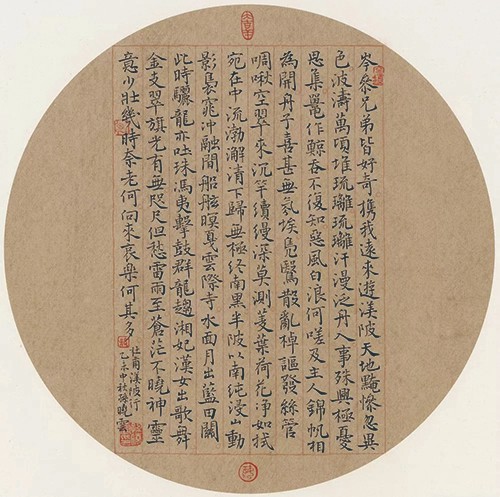 岑參兄弟皆好奇攜我遠來遊渼陂天地黤慘忽異
色波濤萬頃堆琉璃琉璃汗漫泛舟入事殊興極憂
思集鼉作鯨吞不復知惡風白浪何嗟及主人錦帆相
為開舟子喜甚無氛埃鳧鷖散亂棹謳發絲管
啁啾空翠來沉竿續縵深莫測菱葉荷花淨如拭
宛在中流渤解清下歸無極終南黑半陂以南純浸山動
影裊窕沖融間船舷暝戛雲際寺水面月出藍田關
此時驪龍亦吐珠馮夷擊鼓群龍趨湘妃漢女出歌舞
金支翠旗光有無咫尺但愁雷雨至蒼茫不曉神靈
意少壯幾時奈老何向來哀樂何其多
杜甫渼陂行
乙未中秋孫曉雲